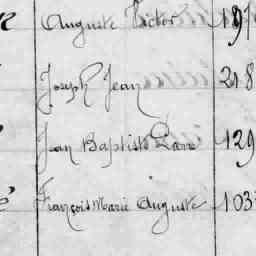 Auguste Victor 191
Joseph Jean 218
Jean Baptiste 129
François Marie Auguste 103